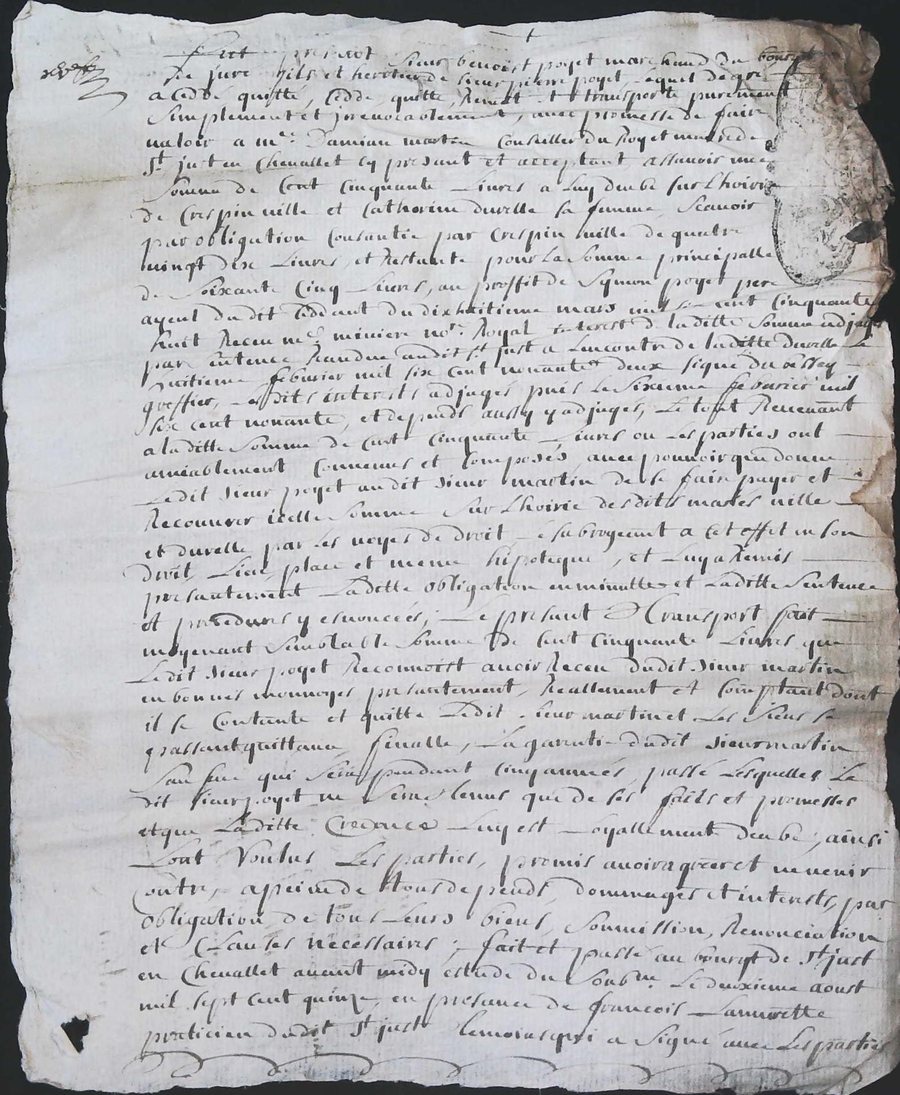 fut present
Sieur benoist poyet marchand du bourgt
de jure fils et heritier de sieur pierre poyet lequel de gré
a ceddé quitté, cedde, quitte, Remet et transporte purement
Simplement et jrrevocablement, avec promesse de faire
valoir a mre Damian martin Conseiller du Roy et maire de
St just en Chevallet cy present et acceptant assavoir une
Somme de Cent Cinquante Livres a Luy deube sur Lhoirie
de Crespin mille et Catherine duvelle sa femme, Scavoir
par obligation Consantie par Crespin mille de quatre
vingt dix Livres, et Restante pour la Somme principalle
de Soixante Cinq Livres, au proffit de Symon poyet pere
ayeul dudit Ceddent du dixhuitieme mars mil six cent Cinquante
huit Receu me miniere nore Royal interest de laditte Somme adjugé
par Sentence Randue audit St just a Lencontre de laditte duvelle le
huitieme feburier mil six Cent nonante deux signé du
greffier, Lesdits interests adjugés puis le Sixieme feburier mil
six cent nonante, et depends aussy y adjugés, Le tout Revenant
a la ditte Somme de cent cinquante Livres ou Les parties ont
amiablement Convenus et Composés, avec pouvoir que donne
Ledit sieur poyet audit sieur martin de se faire payer et
Recouvrer icelle Somme sur Lhoirie desdits mariés mille
et duvelle par Les voyes de droit, Le subrogeant a cet effet en son
droit, Lieu, place et meme hipoteque, et Luy a Remis
presantement Laditte obligation en minutte et Laditte Sentence
et procedures y esnoncées, Le present transport fait
moyenant Semblable Somme de Cent Cinquante Livres que
Ledit sieur poyet Reconnoist avoir Receu dudit sieur martin
en bonnes monnoyes presantement, Reallement et Comptant dont
il se Contante et quitte Ledit sieur martin et Les Siens Le
passant quittance finalle, La garentie dudit sieur martin
qui Sera pendant cinq années, passé Lesquelles Le
dit sieur poyet ne Sera tenus que de ses faits et promesses
et que Laditte Credence Luy est Loyallement deube, ainsi
Lont Voulus Les parties, promis avoir agreer et ne venir
Contre, a peine de tous depends, dommages et interests, par
obligation de tous Leurs biens, Soummission, Renonciation
et Clauses necessaires; fait et passé au bourgt de St just
en Chevallet avant midy estude du Soubne Le deuxieme aoust
mil sept cent quinze, en presance de francois
praticien dudit St just temoins qui a Signé avec Les parties